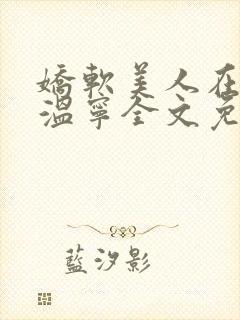 嬌軟美人在
溫寧全文免
藍汐影